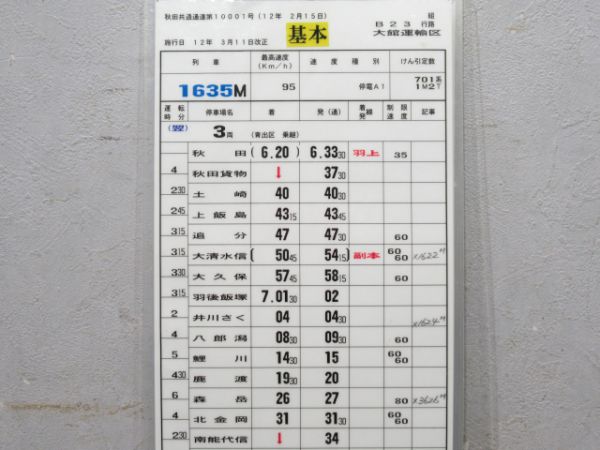 秋田共通達第10001号(12年 2月15日)
組
基本
B23行路
施行日 12年 3月11日改正
大館運輸区
列車 最高速度(Km/h) 速度 種別 けん引定数
1635M 95 停電A1 701系 1M2T
運転時分 停車場名 着 発(通) 着線発 制限速度 記事
(翌) 3両 (青出区 乗継)
秋田 (6.20) 6.33 30 羽上 35
4 秋田貨物 ↓ 37 30
2 30 土崎 40 40 30
2 45 上飯島 43 15 43 45
3 15 追分 47 47 30 60
3 15 大清水信 (50 45 54 15) 副本 60 60 ×1622M
3 30 大久保 57 45 58 15 60
3 15 羽後飯塚 7.01 30 02
2 井川さく 04 04 30 ×1624M
4 八郎潟 08 30 09 30 60
5 鯉川 14 30 15 60 60
4 30 鹿渡 19 30 20
6 森岳 26 27 80 ×3626M
4 北金岡 31 31 30 60 60
2 30 南能代信 ↓ 34